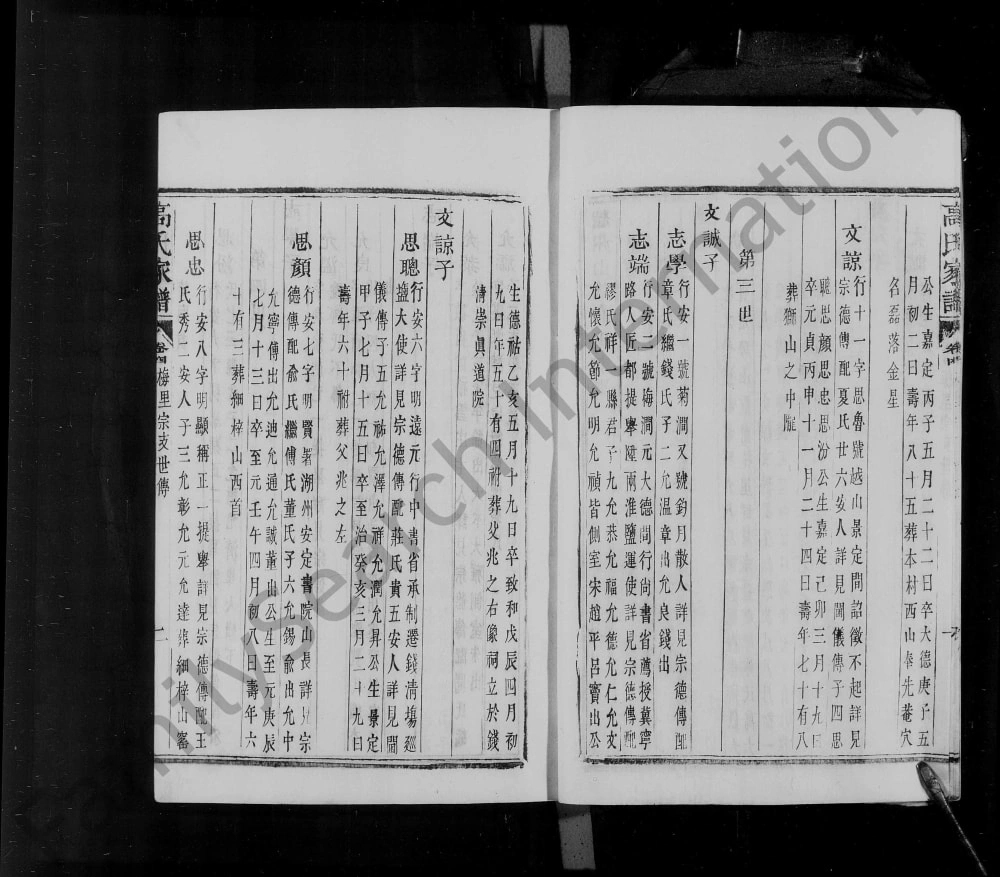 高氏家譜
卷四
公生嘉定丙子五月二十二日卒大德庚子五
月初二日壽年八十五葬本村西山奉先菴穴
名磊落金星
文諒
行十一字思魯號越山景定間詔徵不起詳見
宗德傳配夏氏廿六安人詳見閫儀傳子四思
聰思顏思忠思汾公生嘉定己卯三月十九日
卒元貞丙申十一月二十四日壽年七十有八
葬獅山之中隴
第三世
文誠子
志學
行安一號菊澗又號鈞月散人詳見宗德傳配
章氏繼錢氏子二允溫章出允良錢出
志端
行安二號梅澗元大德間行尚書省薦授冀寧
路人匠都提舉陞兩淮鹽運使詳見宗德傳配
繆氏祥一縣君子九允恭允福允德允仁允文
允懷允節允明允禎皆側室宋趙平呂竇出公
生德祐乙亥五月十九日卒致和戊辰四月初
九日年五十有四祔葬父兆之右像祠立於錢
清崇眞道院
文諒子
思聰
行安六字明遠元行中書省承制遷錢清塲廵
鹽大使詳見宗德傳配莊氏貴五安人詳見閫
儀傳子五允祐允澤允祥允潤允昇公生景定
甲子七月十五日卒至治癸亥三月二十九日
壽年六十祔葬父兆之左
思顏
行安七字明賢署湖州安定書院山長詳見宗
德傳配俞氏繼傅氏董氏子六允錫俞出允中
允寧傅出允迪允通允誠董出公生至元庚辰
七月十三日卒至元壬午四月初八日壽年六
十有三葬細梓山西首
思忠
行安八字明顯稱正一提舉詳見宗德傳配王
氏秀二安人子三允彰允元允達葬細梓山客
高氏家譜
卷四 梅里宗支世傳
二